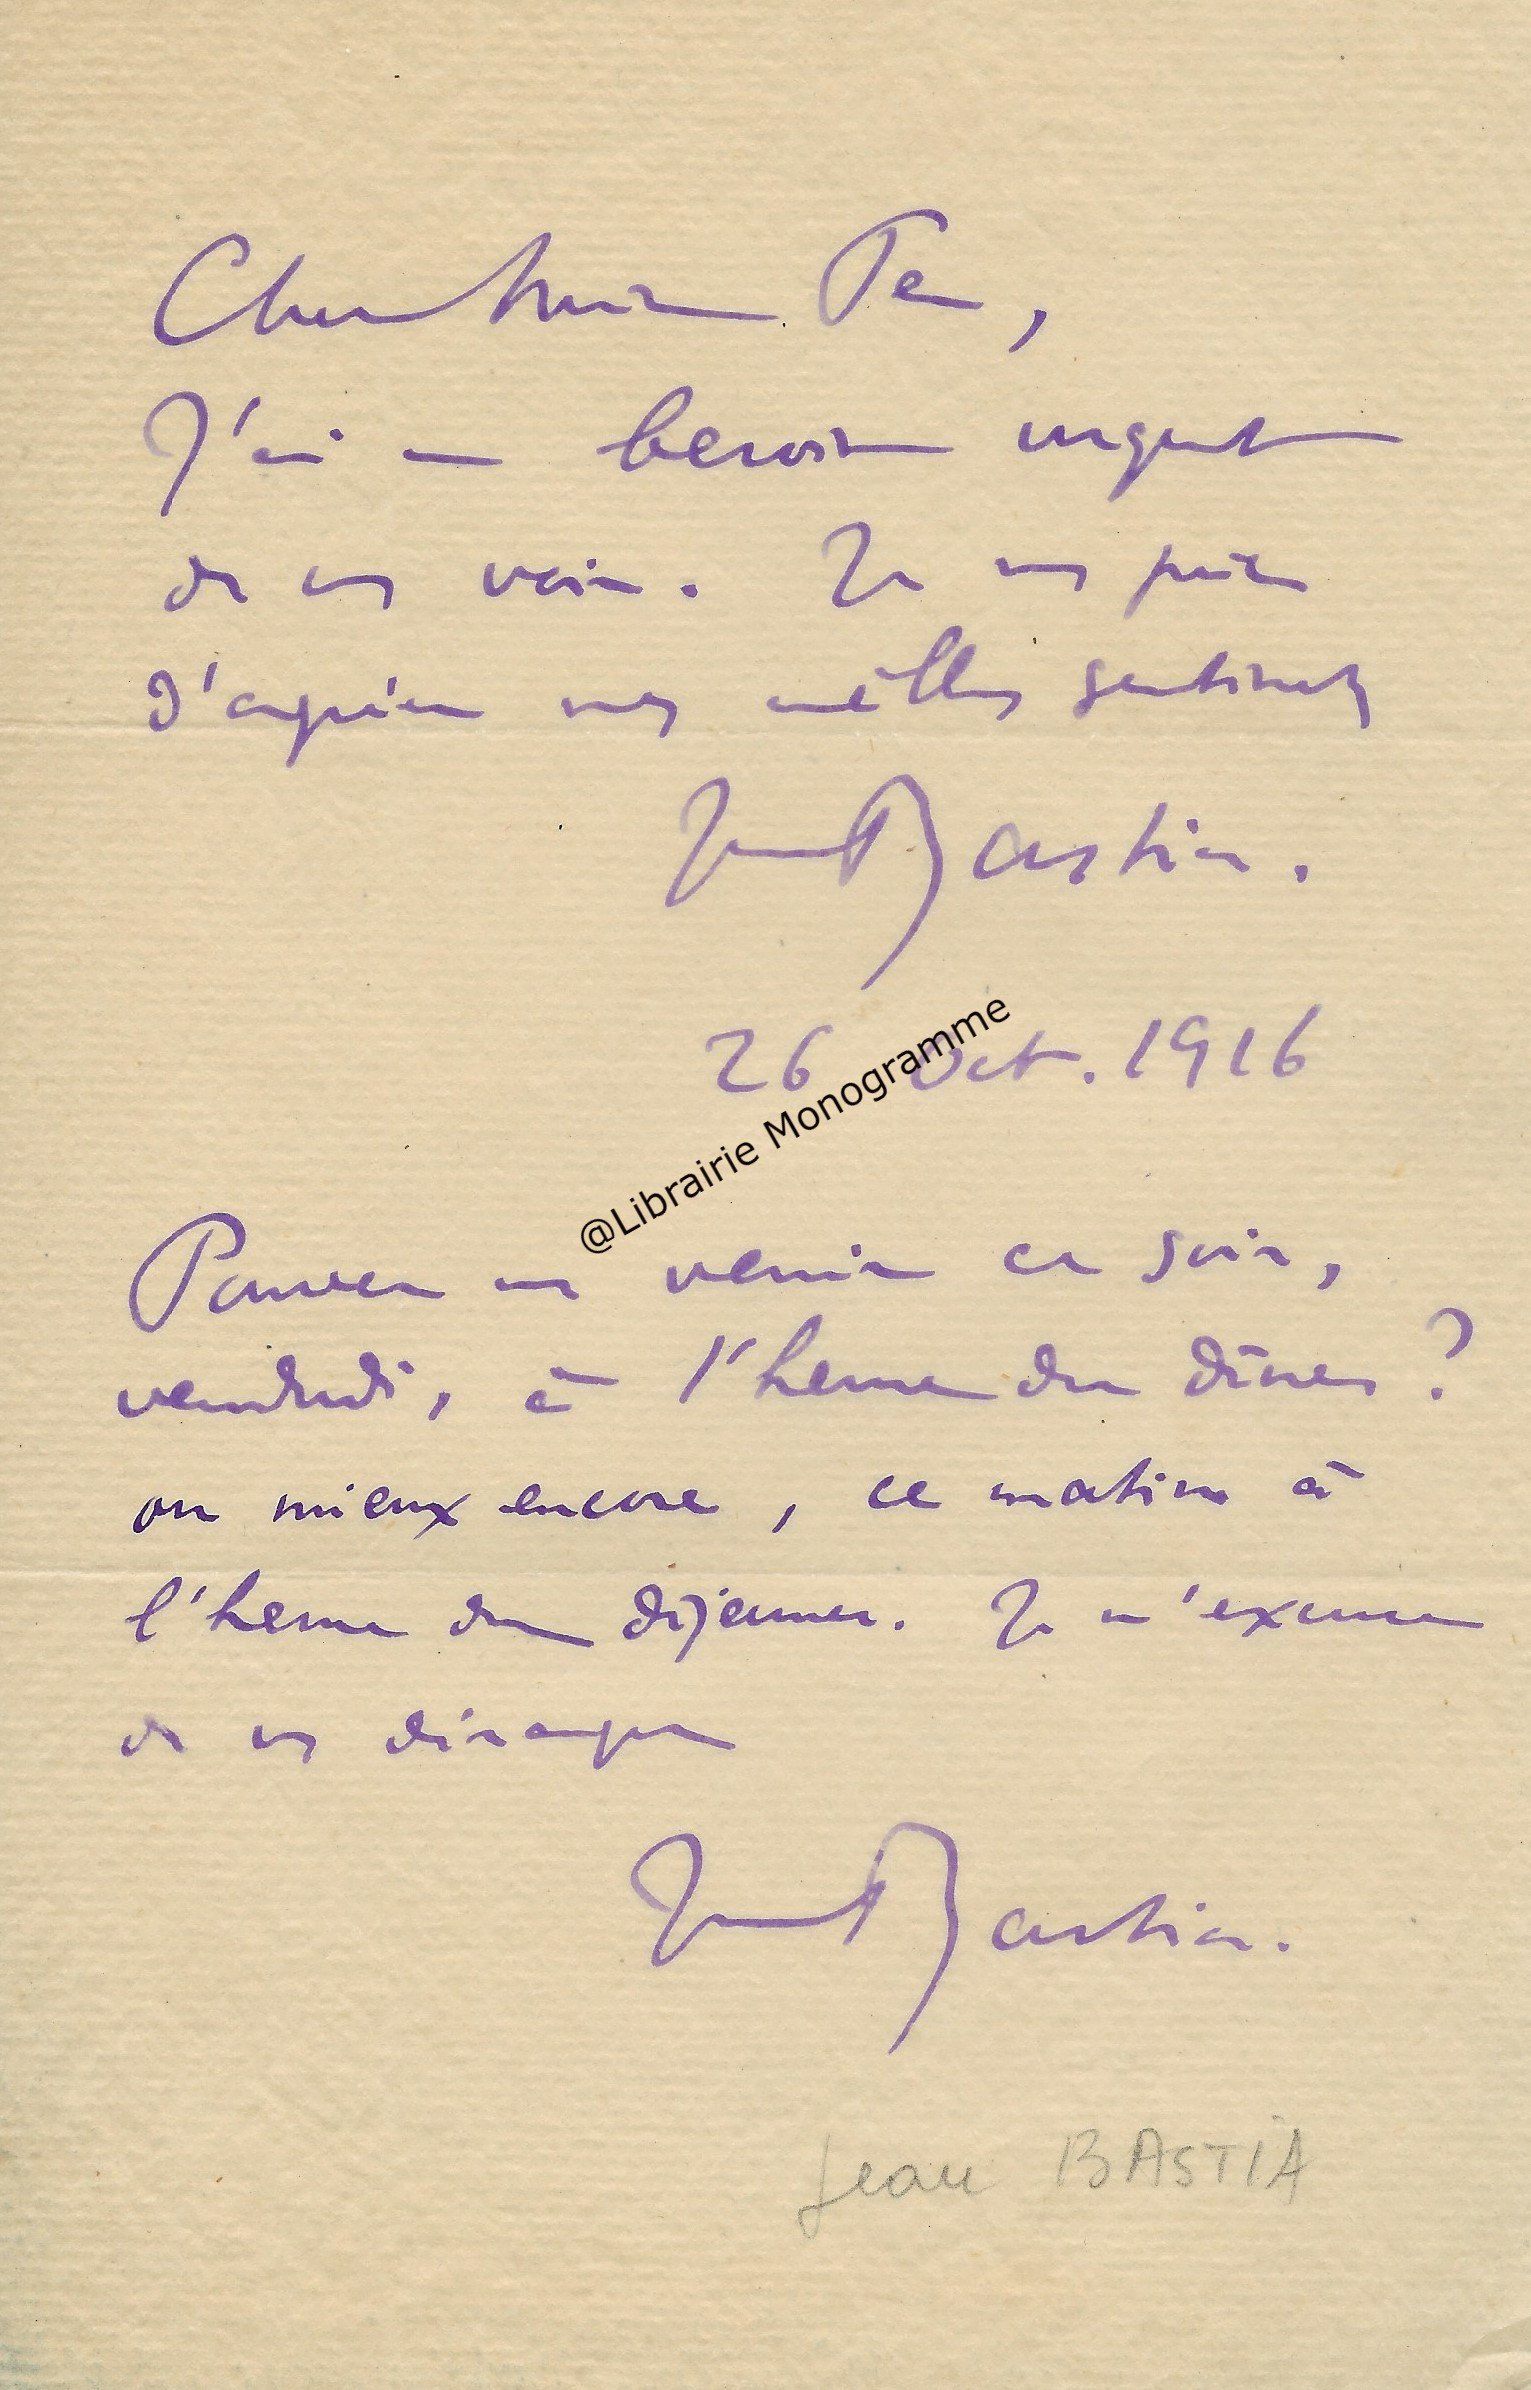 Cher
J'ai un besoin urgent
de vs voir. Je vs prie
d'agréer mes meilleurs sentiments
Jean Bastia.
26 Oct. 1916
@Librairie Monogramme
Pouvez vs venir ce soir,
vendredi, à l'heure du dîner ?
ou mieux encore, ce matin à
l'heure du déjeuner. Je m'excuse
de vs déranger
Jean Bastia.
Jean BASTIA